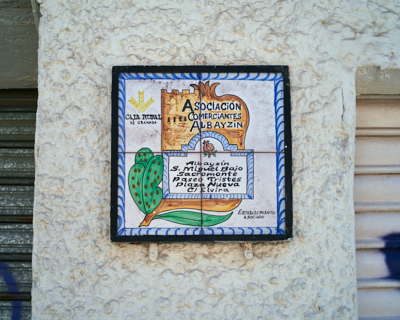 CAJA RURAL
DE GRANADA
ASOCIACIÓN
COMERCIANTES
ALBAYZÍN
Albayzín
S. Miguel Bajo
Sacromonte
Paseo Tristes
Plaza Nueva
C/ Elvira
ESTABLECIMIENTO
ASOCIADO